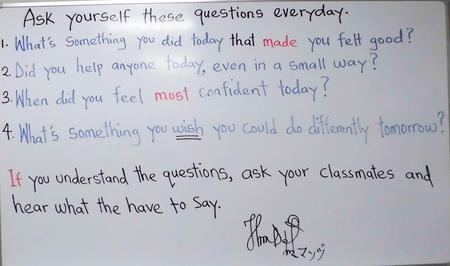 Ask yourself these questions everyday.
1. What's something you did today that made you felt good?
2. Did you help anyone today, even in a small way?
3. When did you feel most confident today?
4. What's something you wish you could do differently tomorrow?
If you understand the questions, ask your classmates and
hear what the have to say.